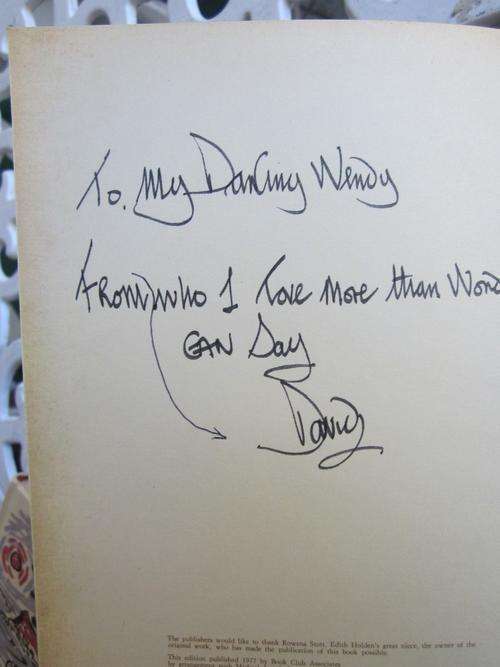 To. My Darling Wendy
From who I love more than Word
CAN Say
David
The publishers would like to thank Rowena Stott, Edith Holden's great niece, the owner of the
original work, who has made the publication of this book possible.
This edition published 1977 by Book Club Associates
by arrangement with